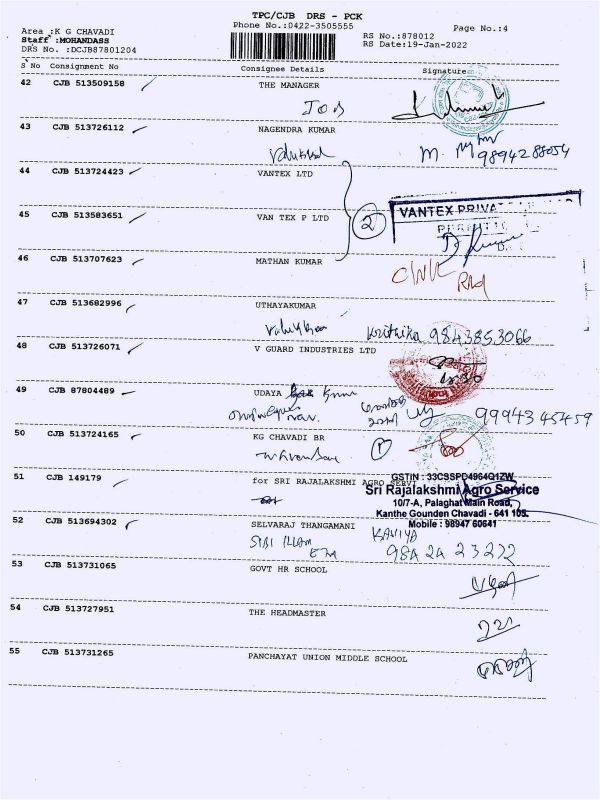 TPC/CJB DRS - PCK
Phone No.:0422-3505555
Page No.:4
Area :K G CHAVADI
Staff :MOHANDASS
DRS No. :DCJB87801204
RS No.:878012
RS Date:19-Jan-2022
S No Consignment No Consignee Details Signature
42 CJB 513509158 THE MANAGER
43 CJB 513726112 NAGENDRA KUMAR
M.
9894288054
44 CJB 513724423 VANTEX LTD
2
VANTEX PRIVA
45 CJB 513583651 VAN TEX P LTD
46 CJB 513707623 MATHAN KUMAR
47 CJB 513682996 UTHAYAKUMAR
Krithika 9843853066
48 CJB 513726071 V GUARD INDUSTRIES LTD
49 CJB 87804489 UDAYA
9994345459
50 CJB 513724165 KG CHAVADI BR
1
51 CJB 149179 for SRI RAJALAKSHMI AGRO SERVI
GSTIN : 33CSSPD4964Q1ZW
Sri Rajalakshmi Agro Service
10/7-A, Palaghat Main Road,
Kanthe Gounden Chavadi - 641 105.
Mobile : 98947 60641
52 CJB 513694302 SELVARAJ THANGAMANI
KAVIYA
98A2A 23272
53 CJB 513731065 GOVT HR SCHOOL
54 CJB 513727951 THE HEADMASTER
55 CJB 513731265 PANCHAYAT UNION MIDDLE SCHOOL